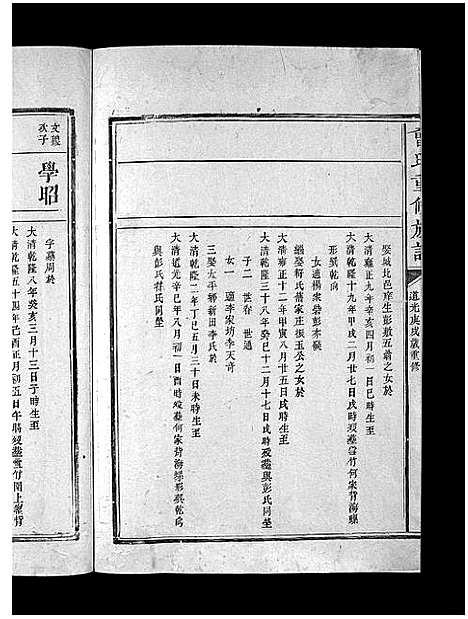 曾氏重修族譜
道光庚戌歲重修
娶城北邑庠生彭敷五翁之女於
大清雍正九年辛亥四月初一日巳時生至
大清乾隆十九年甲戌二月二十七日戌時歿葬雪竹何家背海螺
形巽乾向
女適楊家彭本
繼娶何氏蔣家庄振玉公之女於
大清雍正十二年甲寅八月廿五日戌時生至
大清乾隆三十八年癸巳十二月十七日戌時歿葬與彭氏同塋
子二 世春 世通
女一 適李家坊李天奇
三娶太平轎新田李氏於
大清乾隆二年丁巳五月三十日未時生至
大清道光辛巳年八月初一日酉時歿葬何家背海螺形巽乾向
與彭氏何氏同塋
文 次子
學昭
字 周於
大清乾隆八年癸亥三月十三日子時生至
大清乾隆五十四年己酉正月初五日午時歿葬雪竹園上 背